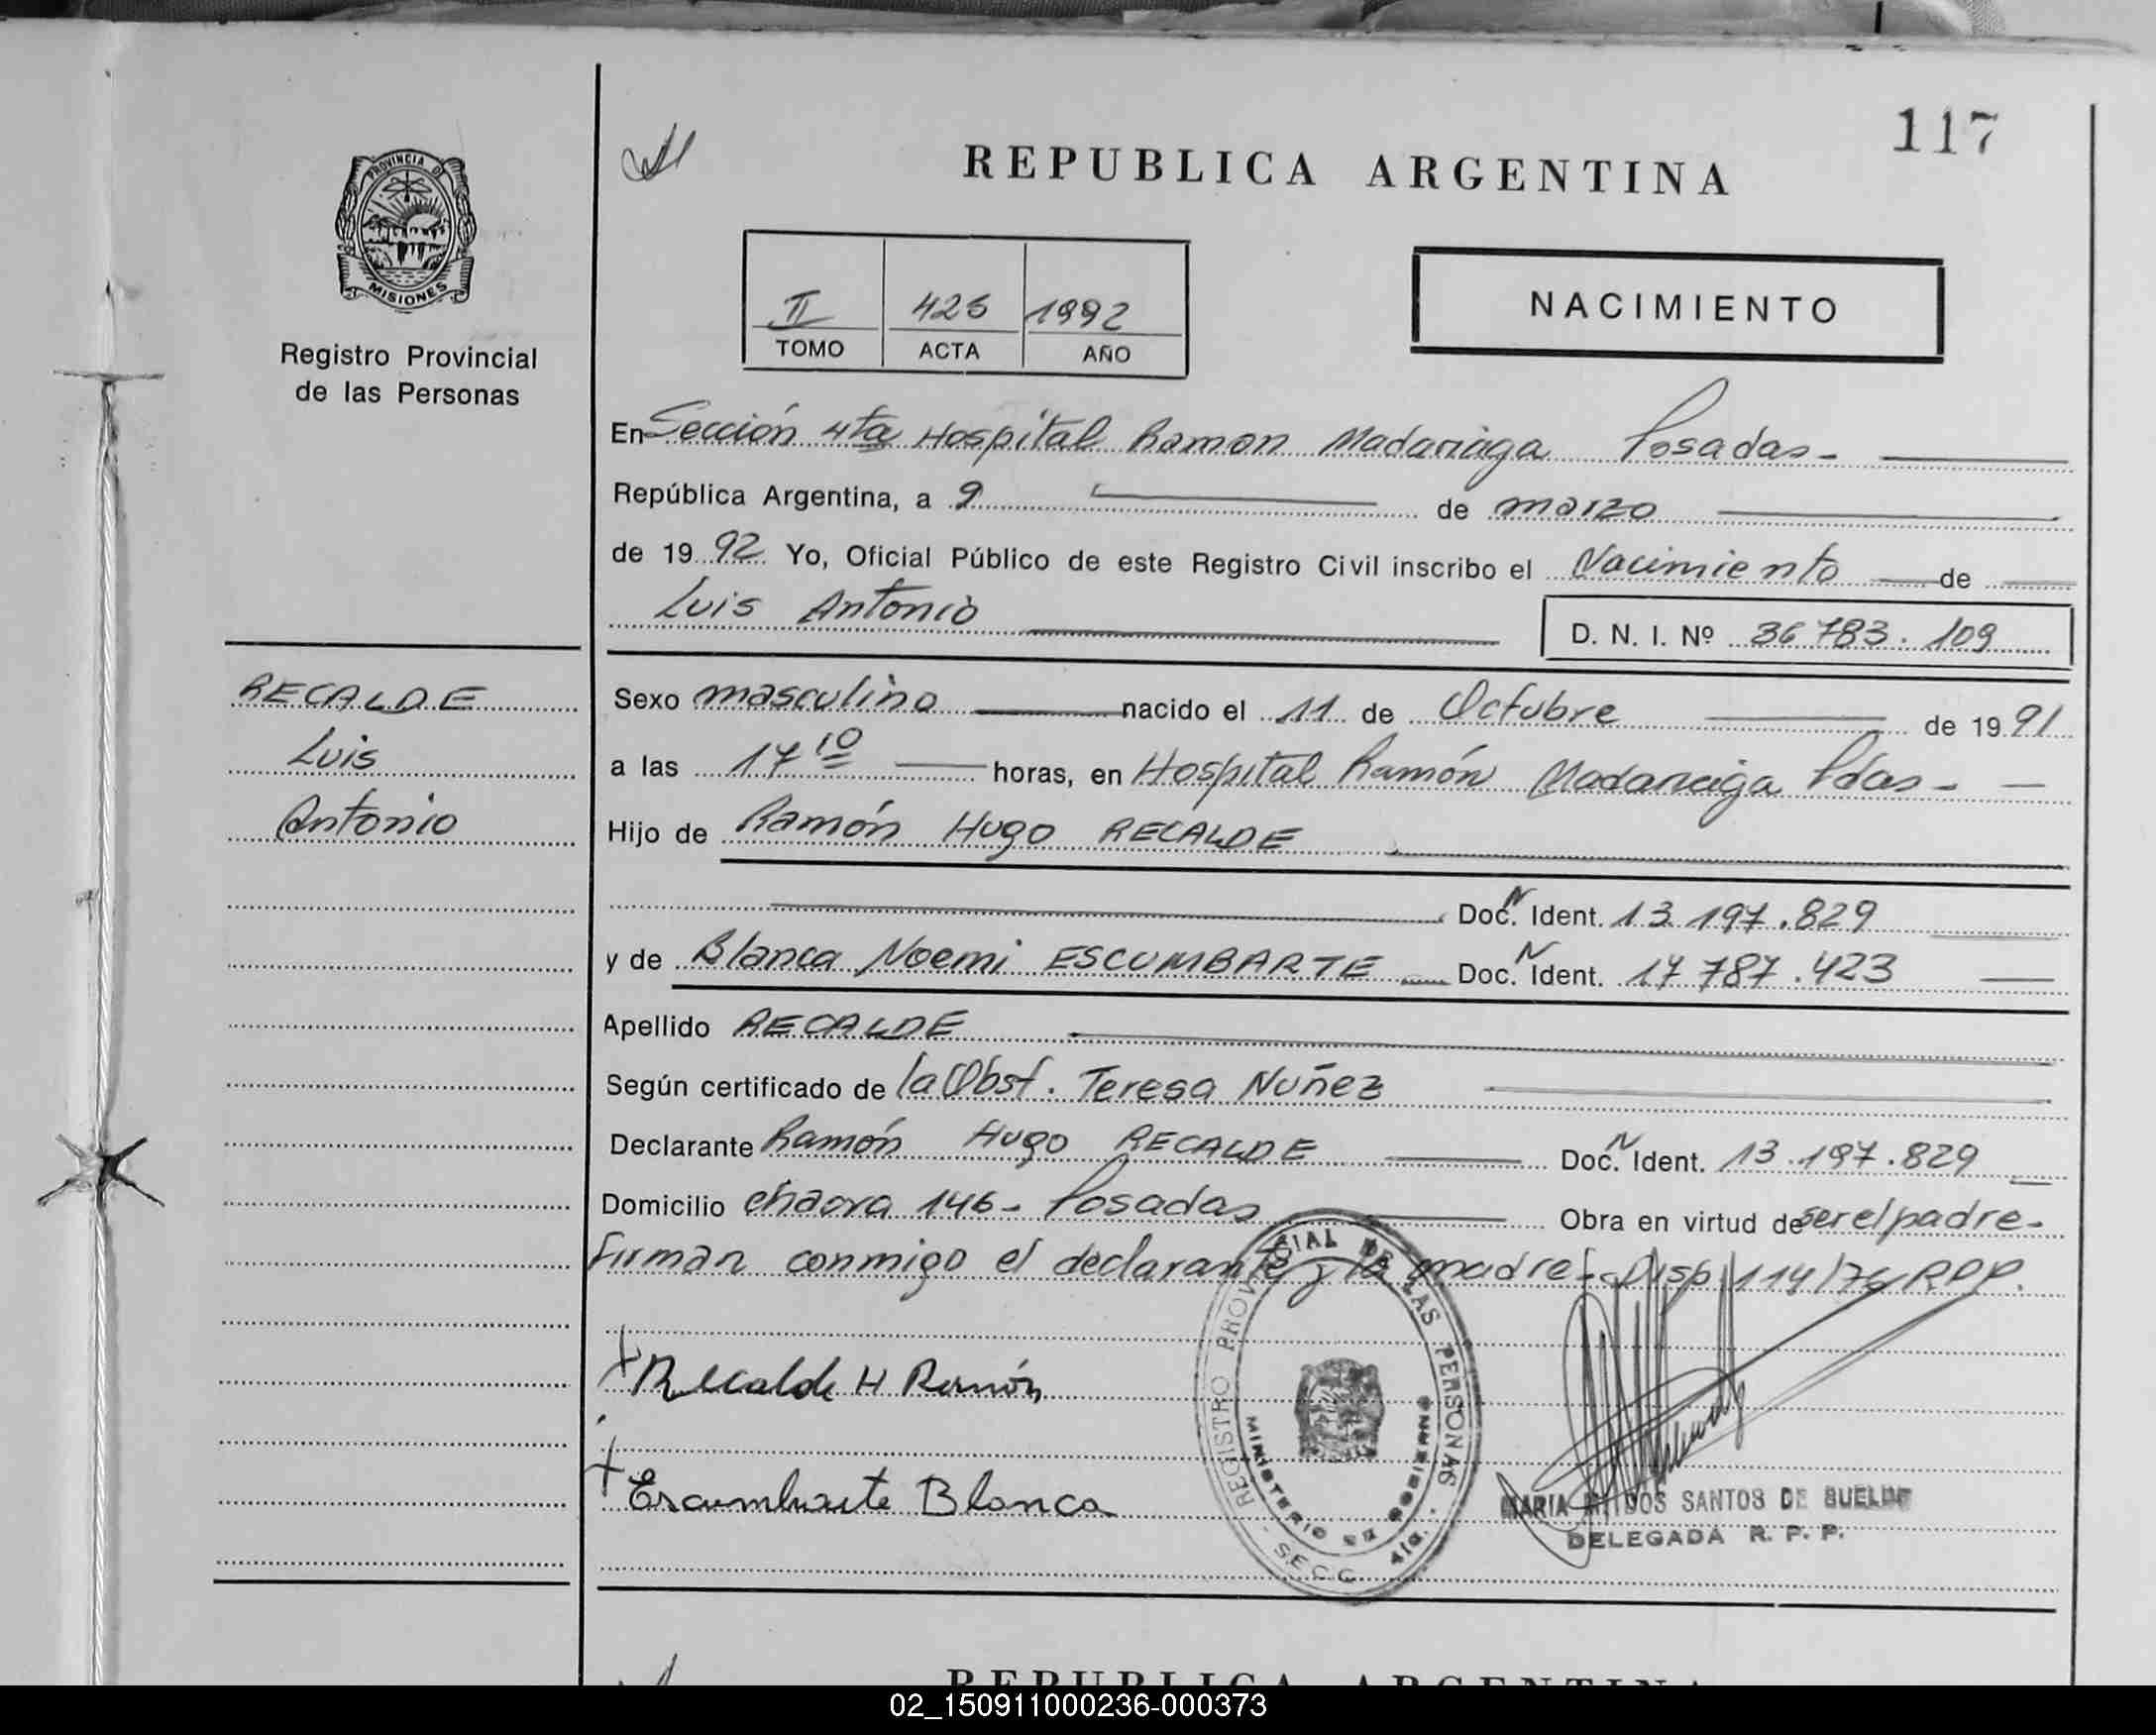 117
REPUBLICA ARGENTINA
PROVINCIA DE
MISIONES
Registro Provincial
de las Personas
II 425 1992
TOMO ACTA AÑO
NACIMIENTO
En Sección 4ta Hospital Ramon Madariaga Posadas-
República Argentina, a 9 de marzo
de 1992 Yo, Oficial Público de este Registro Civil inscribo el Nacimiento de
Luis Antonio D. N. I. Nº 36 783. 109
RECALDE
Luis
Antonio
Sexo masculino nacido el 11 de Octubre de 1991
a las 17 10 horas, en Hospital Ramón Madariaga Pdas-
Hijo de Ramón Hugo RECALDE
Doc. N Ident. 13 197.829
y de Blanca Noemi ESCUMBARTE Doc. N Ident. 17 787.423
Apellido RECALDE
Según certificado de la Obst. Teresa Nuñez
Declarante Ramón Hugo RECALDE Doc. N Ident. 13.197.829
Domicilio chacra 146- Posadas Obra en virtud de ser el padre-
Firman conmigo el declarante y la madre- Disp 114/76 RPP.
Recalde H Ramón
Escumbarte Blanca
REGISTRO PROVINCIAL DE LAS PERSONAS
MINISTERIO DE GOBIERNO
SECC 4ta.
MARIA DOS SANTOS DE BUELDE
DELEGADA R. P. P.
REPUBLICA ARGENTINA
02_150911000236-000373